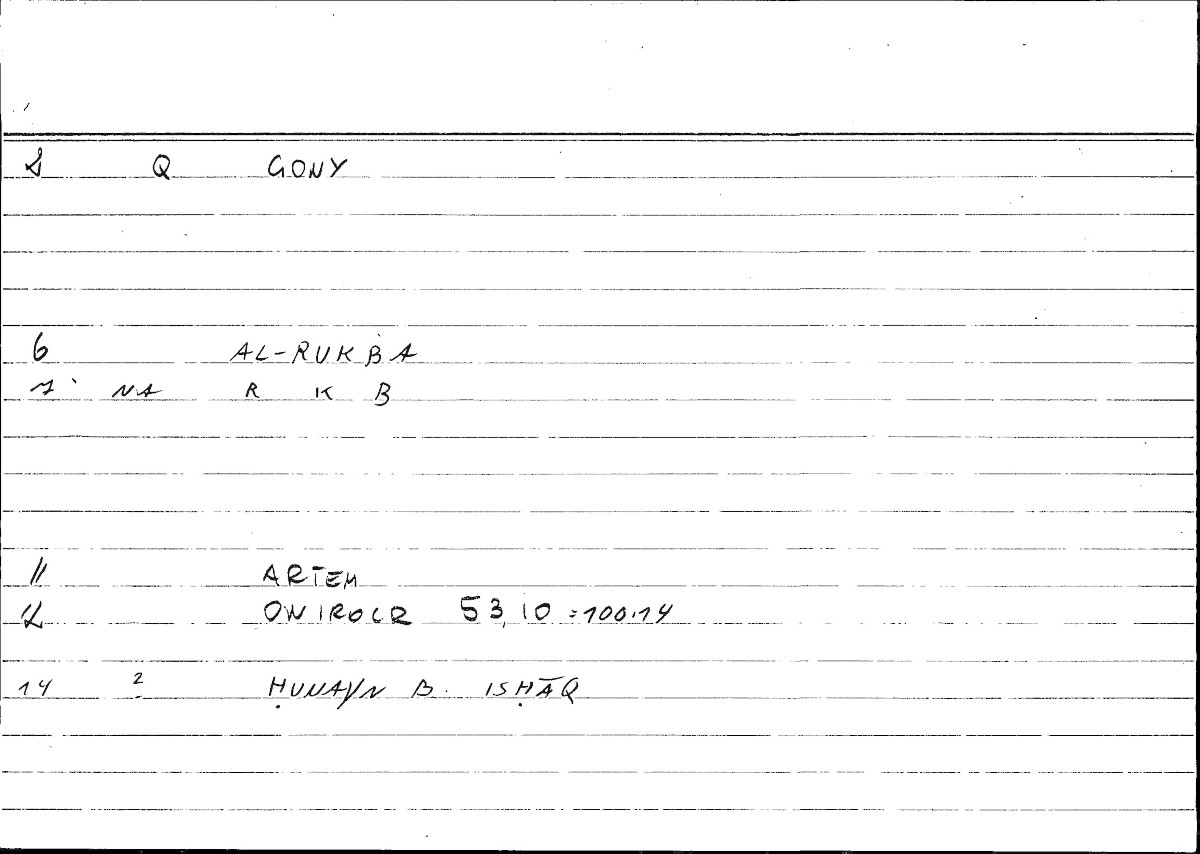 2 Q GONY
6 AL-RUKBA
7 NA R K B
11 ARTEM
12 ONIROCR 53,10 = 100.14
14 2 ḤUNAYN B. ISḤĀQ